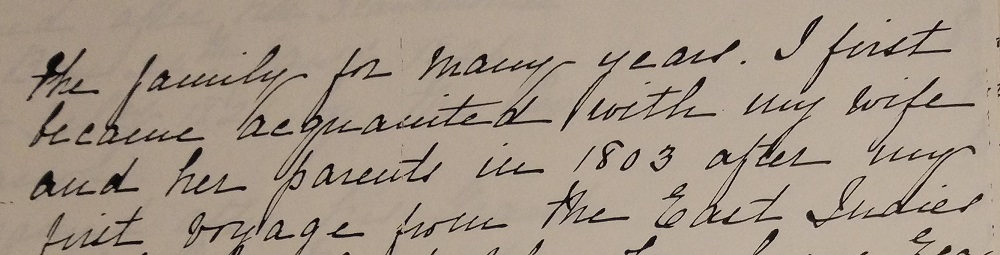 the family for many years. I first
became acquainted with my wife
and her parents in 1803 after my
first voyage from the East Indies